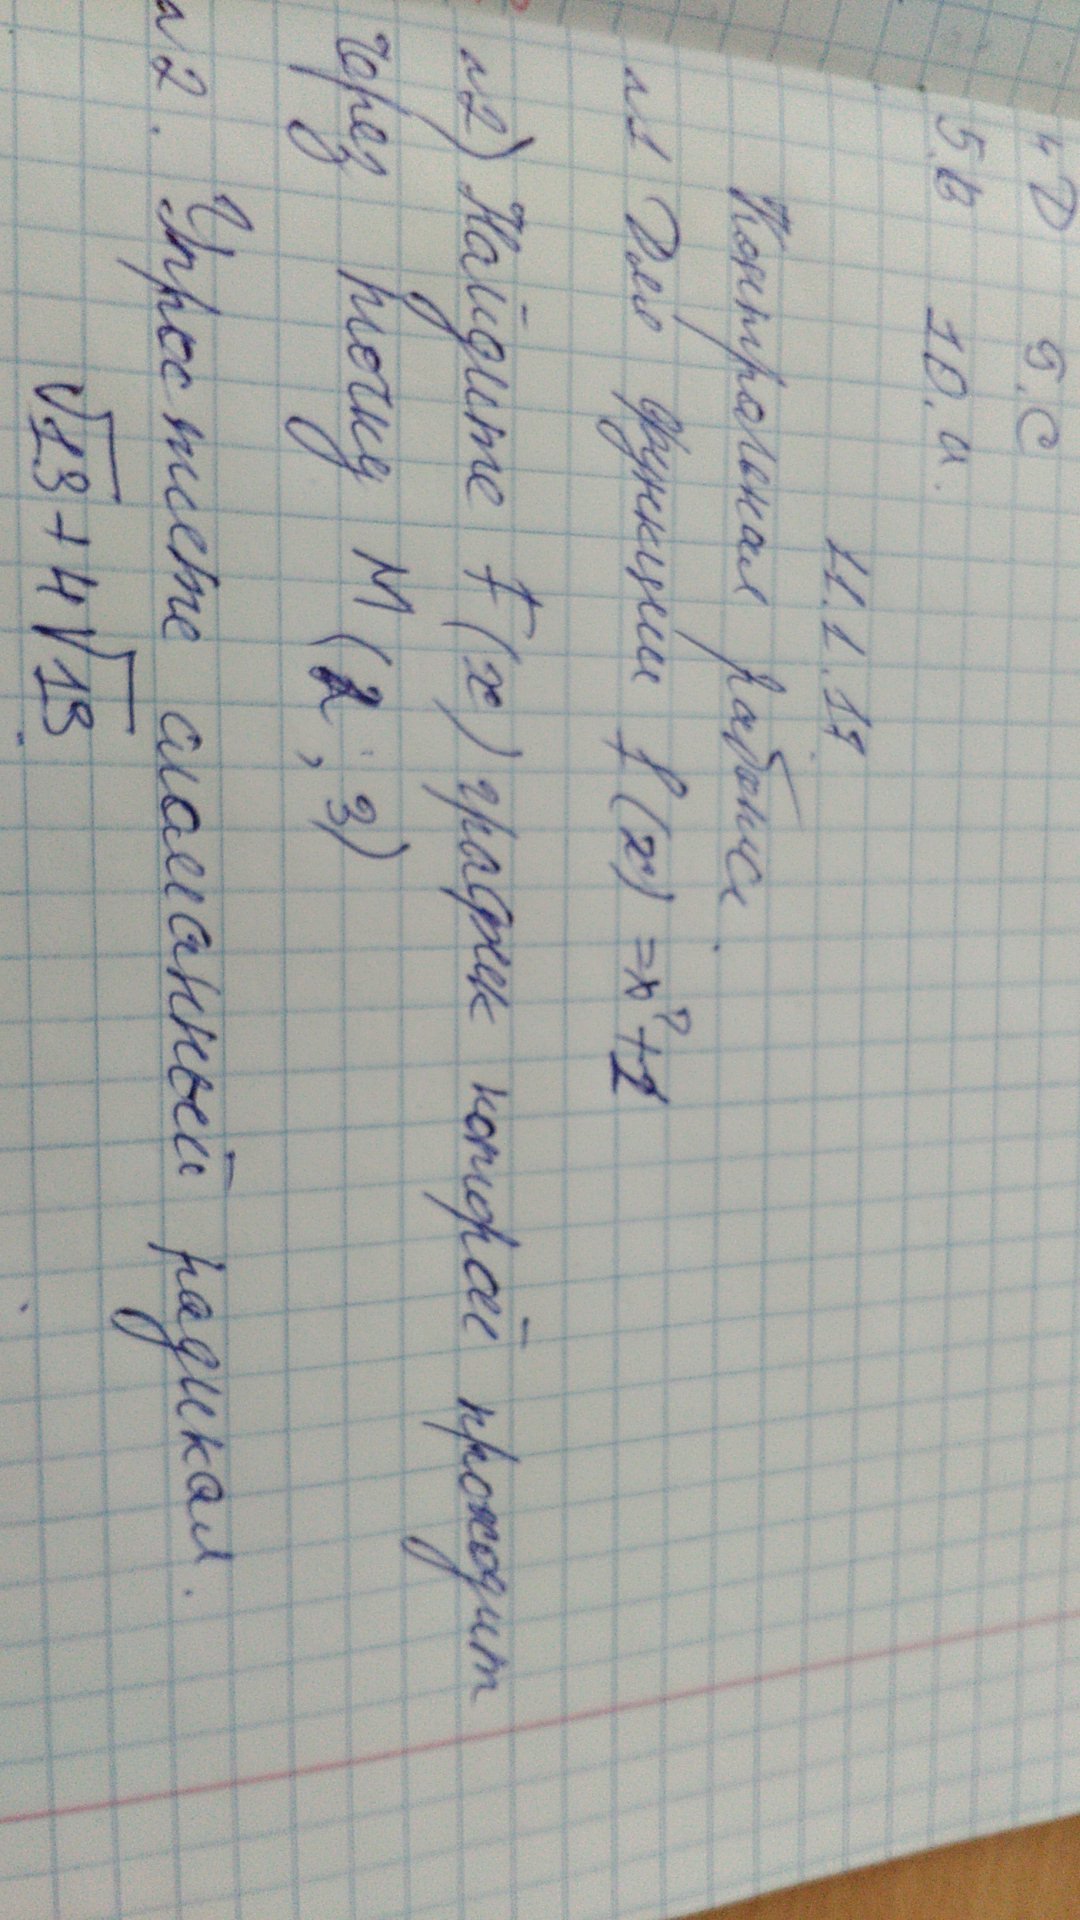 4 D 9. C
5. b 10. a.
11.1.17
Контрольная работа.
№1 Для функции f(x) = x² + 1
№2) Найдите F(x) график которой проходит
через точку M (2; 3)
№2. Упростите сложный радикал.
√13 + 4√13